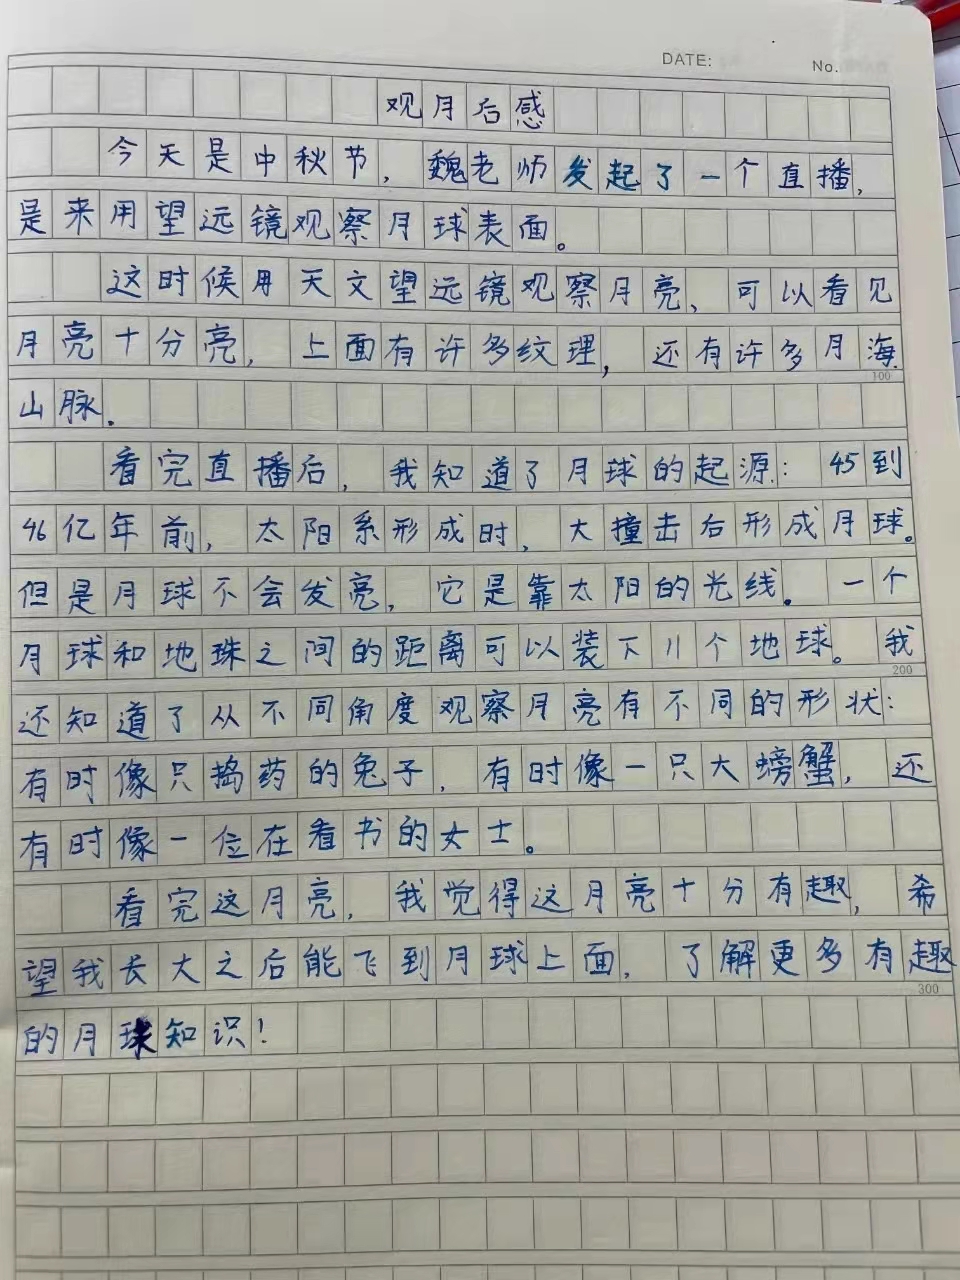 DATE:
No.
观月后感
今天是中秋节，魏老师发起了一个直播，
是来用望远镜观察月球表面。
这时候用天文望远镜观察月亮，可以看见
月亮十分亮，上面有许多纹理，还有许多月海
100
山脉．
看完直播后，我知道了月球的起源：45到
46亿年前，太阳系形成时，大撞击后形成月球。
但是月球不会发亮，它是靠太阳的光线．一个
月球和地珠之间的距离可以装下11个地球。我
200
还知道了从不同角度观察月亮有不同的形状：
有时像只捣药的兔子，有时像一只大螃蟹，还
有时像一位在看书的女士。
看完这月亮，我觉得这月亮十分有趣，希
望我长大之后能飞到月球上面，了解更多有趣
300
的月球知识！